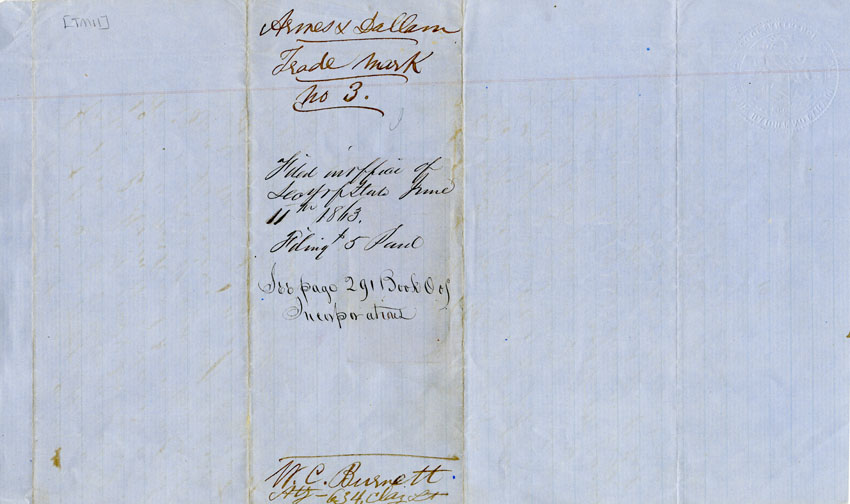 [TM11]
Armes & Dallam
Trade Mark
no 3.
Filed in office of
Secy of State June
11th 1863.
Filing $5 Paid
See page 291 Book O of
Incorporations
W. C. Burnett
Atty - 634 Clay St